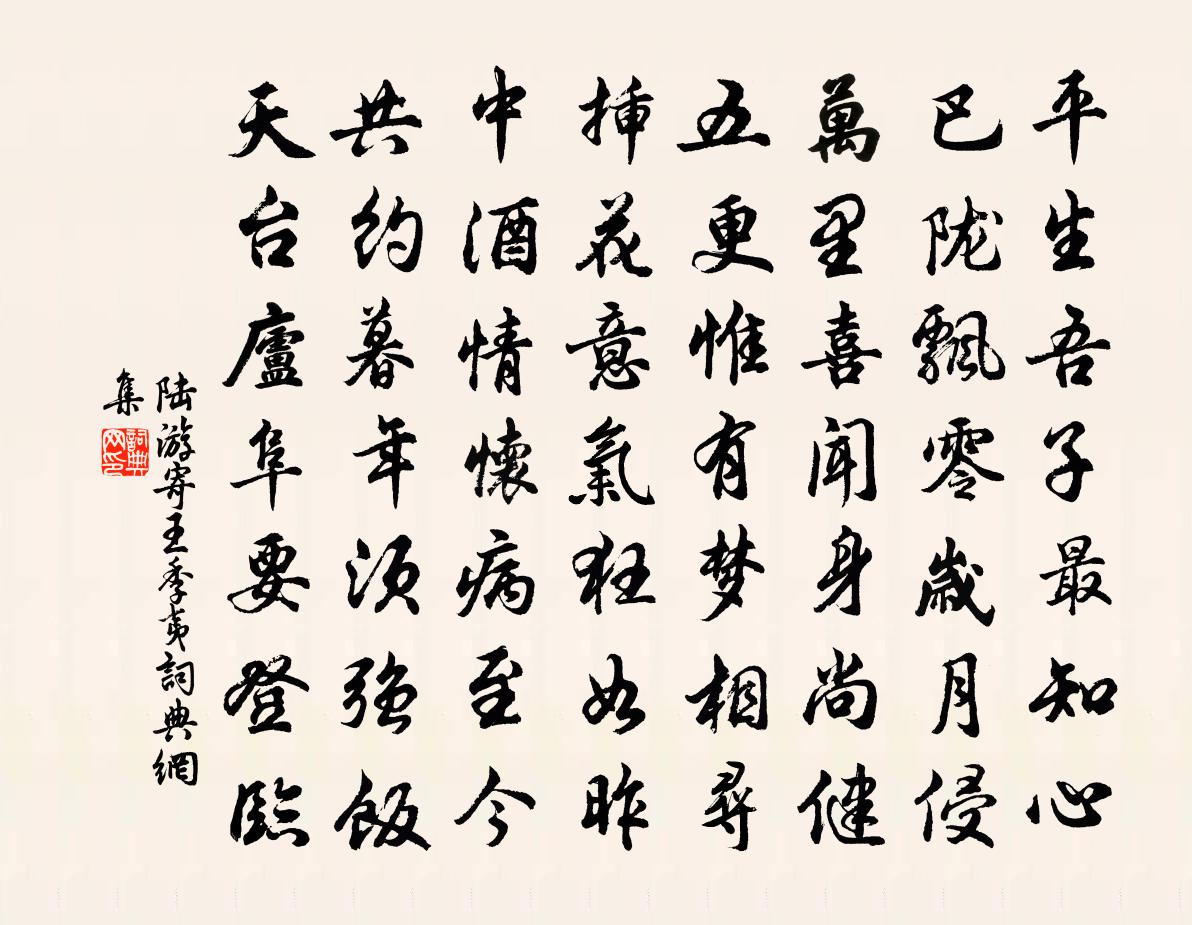 平生吾子最知心
巴陇飄零歲月侵
萬里喜聞身尚健
五更惟有梦相尋
挿花意氣狂如昨
中酒情懷病至今
共約暮年須強飯
天台廬阜要登臨
陆游寄王季夷詞典網
集
詞典网印